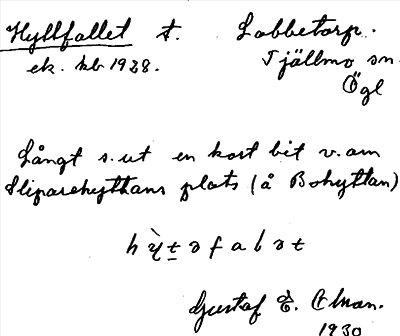 Hyttfallet t. Lobbetorp.
ek. kb 1928. Tjällmo sn.
Ögl
Långt s. ut en kort bit v. om
Sliparehyttans plats (å Bohyttan)
h ỳ t ə f a l ə t
Gustaf E. Ohman.
1930